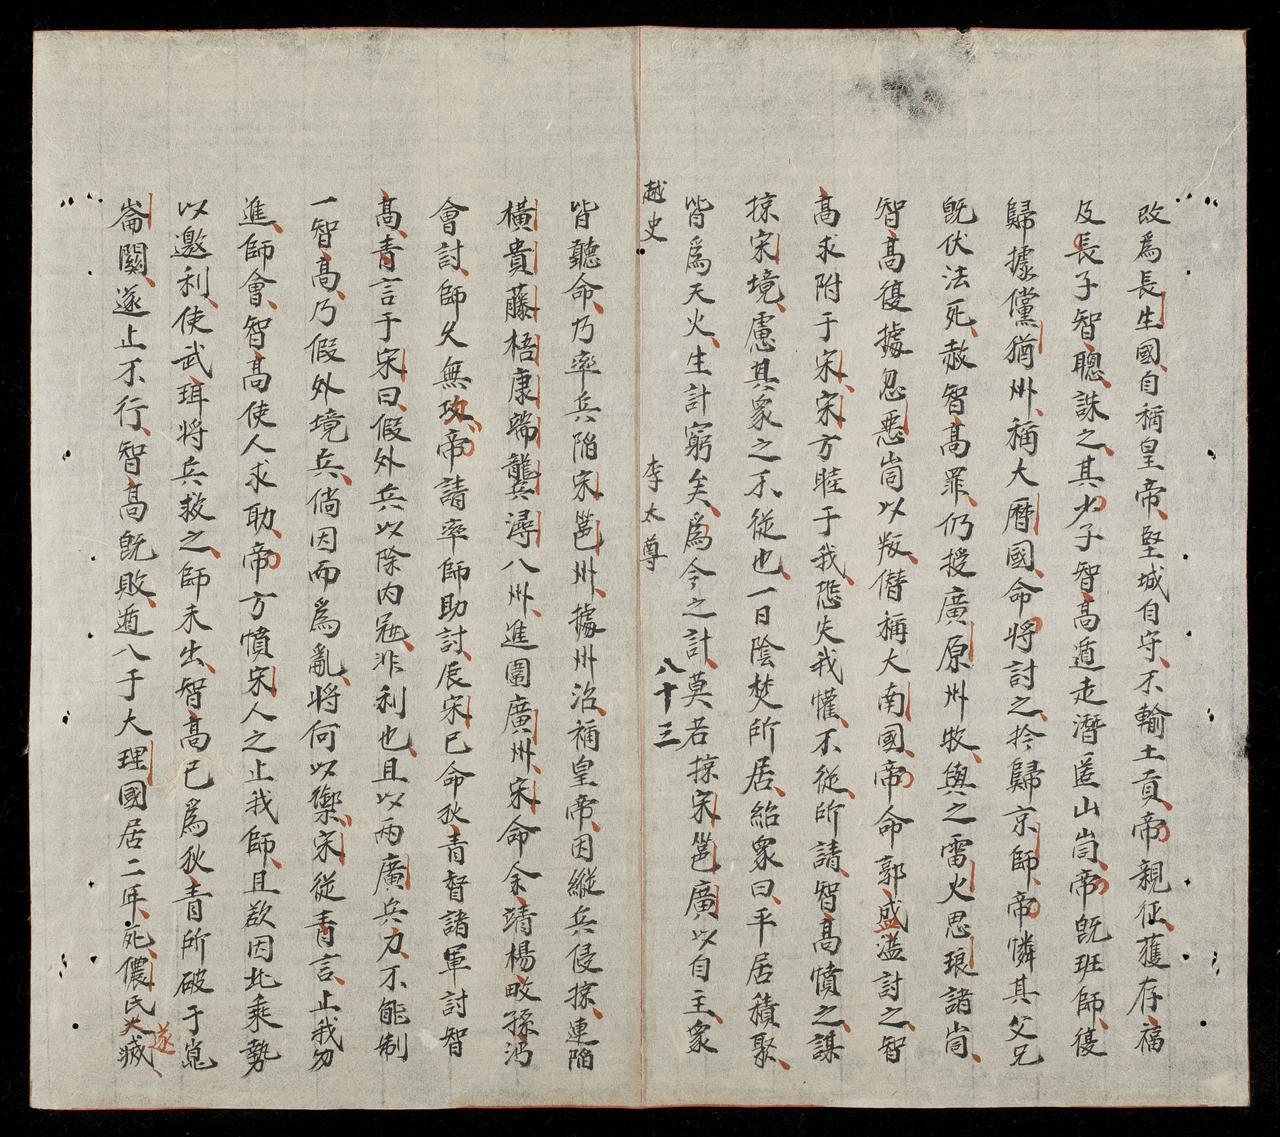 改爲長生國自稱皇帝堅城自守不輸土貢帝親征獲存福
及長子智聰誅之其少子智高遁走潛匿山峝帝既班師復
歸據儻猶州稱大曆國命將討之拎歸京師帝憐其父兄
既伏法死赦智高罪仍授廣原州牧與之雷火思琅諸峝
智高復據忽惡峝以叛僭稱大南國帝命郭盛溢討之智
高求附于宋宋方睦于我恐失我懽不從所請智高憤之謀
掠宋境慮其眾之不從也一日陰焚所居紿眾曰平居積聚
皆爲天火生計窮矣爲今之計莫若掠宋邕廣以自主眾
越史 李太尊 八十三
皆聽命乃率兵陷宋邕州據州治稱皇帝因縱兵侵掠連陷
橫貴藤梧康端龔潯八州進圍廣州宋命余靖楊畋孫沔
會討師久無攻帝請率師助討展宋已命狄青督諸軍討智
高青言于宋曰假外兵以除内寇非利也且以兩廣兵力不能制
一智高乃假外境兵倘因而爲亂將何以禦宋從青言止我勿
進師會智高使人求助帝方憤宋人之止我師且欲因此乘勢
以邀利使武珥將兵救之師未出智高已爲狄青所破于崑
崙關遂止不行智高既敗遁入于大理國居二年死儂氏遂滅